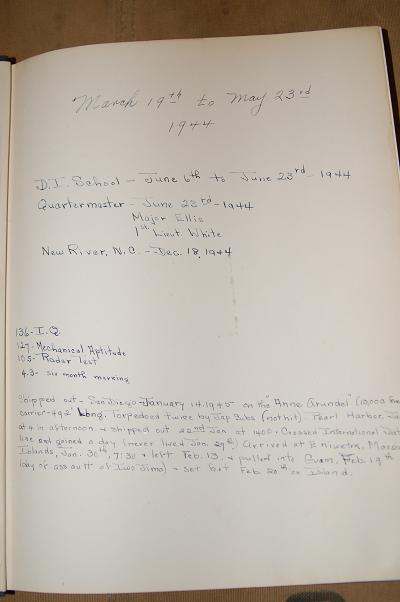 March 19th to May 23rd
1944
D.I. School - June 6th to June 23rd - 1944
Quartermaster - June 23rd - 1944
Major Ellis
1st Lieut White
New River, N.C. - Dec. 18, 1944
136 - I.Q
127 - Mechanical Aptitude
105 - Radar Test
4.3 - six month marking
Shipped out - San Diego - January 14, 1945 on the "Anne Arundel" (12,000
carrier - 492' Long. Torpedoed twice by Jap Subs (not hit). Pearl Harbor
at 4 in afternoon & shipped out 22nd Jan. at 1400. Crossed International
line and gained a day (never lived Jan. 29th) Arrived at
Islands, Jan. 30th, 7:30 & left Feb. 13. & pulled into Guam. Feb. 19th
(day of assault of Iwo Jima) & set foot Feb 20th on Island.